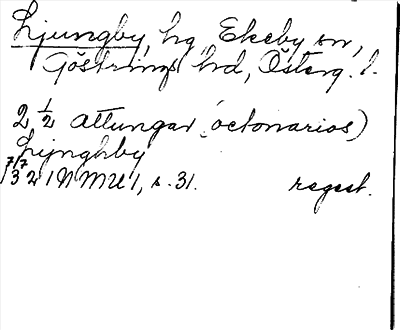 Ljungby, hg, Ekeby sn,
Göstrings hrd, Österg. l.
2 1/2 attungar (octonarios)
Lijnghby
7/7 1321 NMU 1, s. 31. regest.